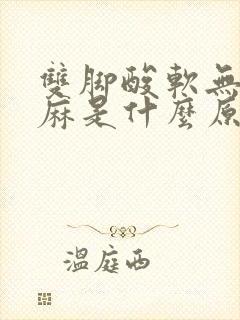 雙腳酸軟無
麻是什麼原
溫庭西